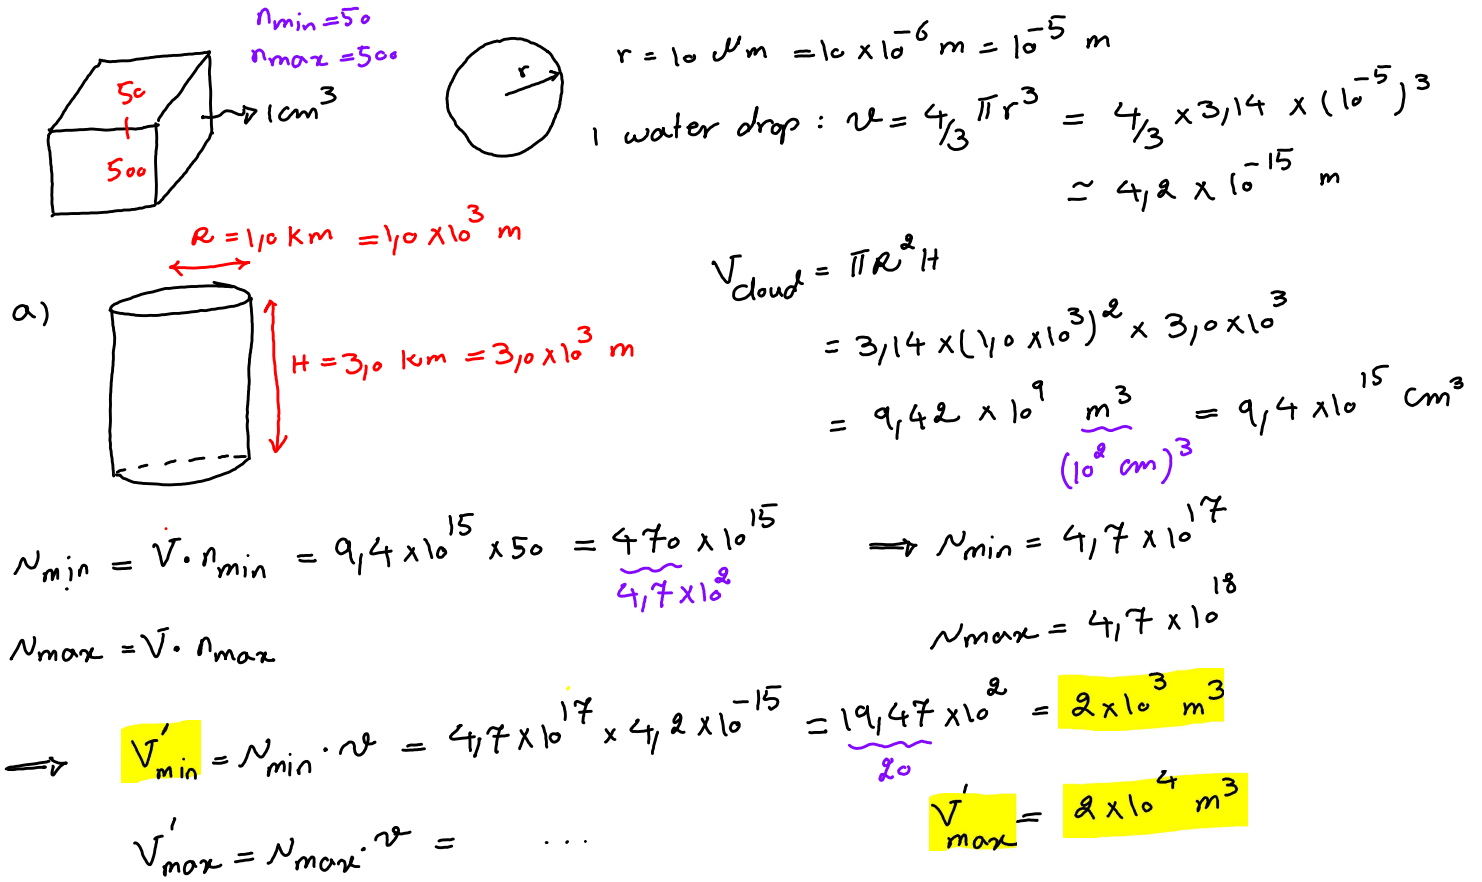 n_min = 50
n_max = 500
50
500
1 cm³
r
r = 10 μm = 10 × 10⁻⁶ m = 10⁻⁵ m
1 water drop : v = 4/3 π r³ = 4/3 × 3,14 × (10⁻⁵)³
≃ 4,2 × 10⁻¹⁵ m
a)
R = 1,0 km = 1,0 × 10³ m
H = 3,0 km = 3,0 × 10³ m
V_cloud = π R² H
= 3,14 × (1,0 × 10³)² × 3,0 × 10³
= 9,42 × 10⁹ m³ = 9,4 × 10¹⁵ cm³
(10² cm)³
N_min = V · n_min = 9,4 × 10¹⁵ × 50 = 470 × 10¹⁵ ⟹ N_min = 4,7 × 10¹⁷
4,7 × 10²
N_max = V · n_max N_max = 4,7 × 10¹⁸
⟹ V'_min = N_min · v = 4,7 × 10¹⁷ × 4,2 × 10⁻¹⁵ = 19,47 × 10² = 2 × 10³ m³
20
V'_max = N_max · v = ... V'_max = 2 × 10⁴ m³